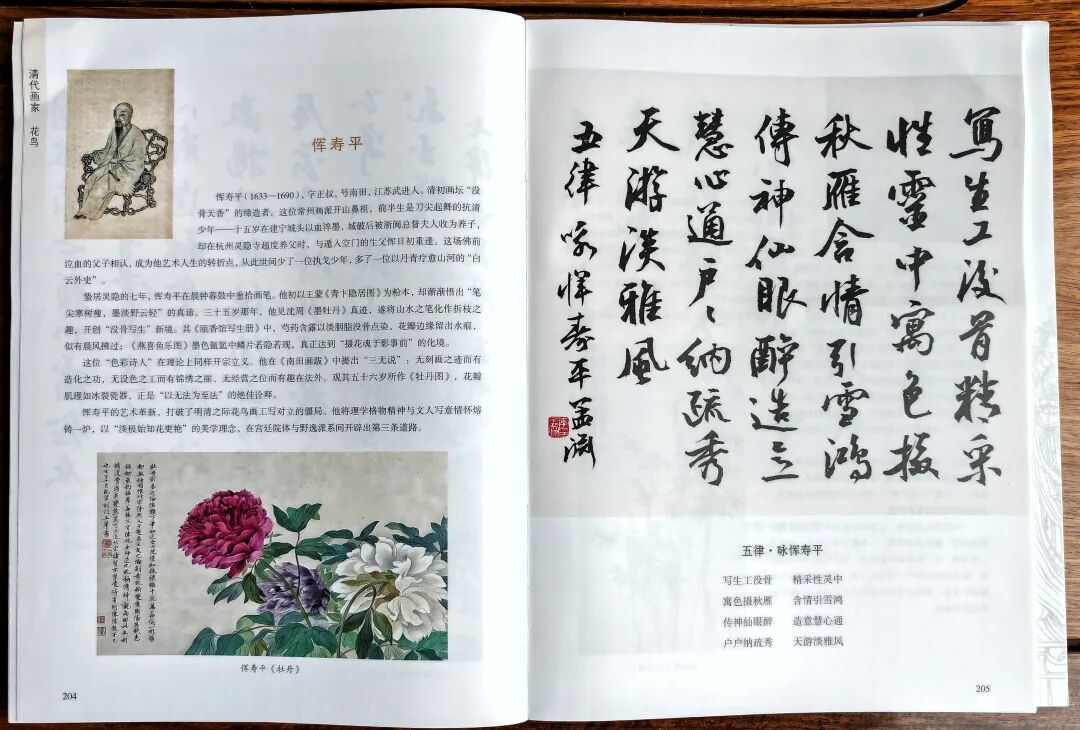 清代画家 花鸟
恽寿平
恽寿平（1633—1690），字正叔，号南田，江苏武进人。清初画坛“没
骨天香”的缔造者。这位常州画派开山鼻祖，前半生是刀尖起舞的抗清
少年——十五岁在建宁城头以血淬墨，城破后被浙闽总督夫人收为养子，
却在杭州灵隐寺超度养父时，与遁入空门的生父恽日初重逢。这场佛前
泣血的父子相认，成为他艺术人生的转折点，从此世间少了一位执戈少年，多了一位以丹青疗愈山河的“白
云外史”。
蛰居灵隐的七年，恽寿平在晨钟暮鼓中重拾画笔。他初以王蒙《青卞隐居图》为粉本，却渐渐悟出“笔
尖寒树瘦，墨淡野云轻”的真谛。三十五岁那年，他见沈周《墨牡丹》真迹，遂将山水之笔化作折枝之
趣，开创“没骨写生”新境。其《瓯香馆写生册》中，芍药含露以淡胭脂没骨点染，花瓣边缘留出水痕，
似有晨风拂过；《燕喜鱼乐图》墨色氤氲中鳞片若隐若现，真正达到“摄花魂于影事前”的化境。
这位“色彩诗人”在理论上同样开宗立义。他在《南田画跋》中提出“三无说”：无刻画之迹而有
造化之功，无设色之工而有锦绣之丽、无经营之位而有趣在法外，观其五十六岁所作《牡丹图》，花瓣
肌理如冰裂瓷器，正是“以无法为至法”的绝佳诠释。
恽寿平的艺术革新，打破了明清之际花鸟画工写对立的僵局。他将理学格物精神与文人写意情怀熔
铸一炉，以“淡极始知花更艳”的美学理念，在宫廷院体与野逸派系间开辟出第三条道路。
恽寿平《牡丹》
204
寫生工没骨精采
性靈中寓色攝
秋雁含情引雪鴻
傳神仙眼醉造意
慧心通户户纳疏秀
天游淡雅風
五律 咏恽寿平 孟浏
五律·咏恽寿平
写生工没骨 精采性灵中
寓色摄秋雁 含情引雪鸿
传神仙眼醉 造意慧心通
户户纳疏秀 天游淡雅风
205